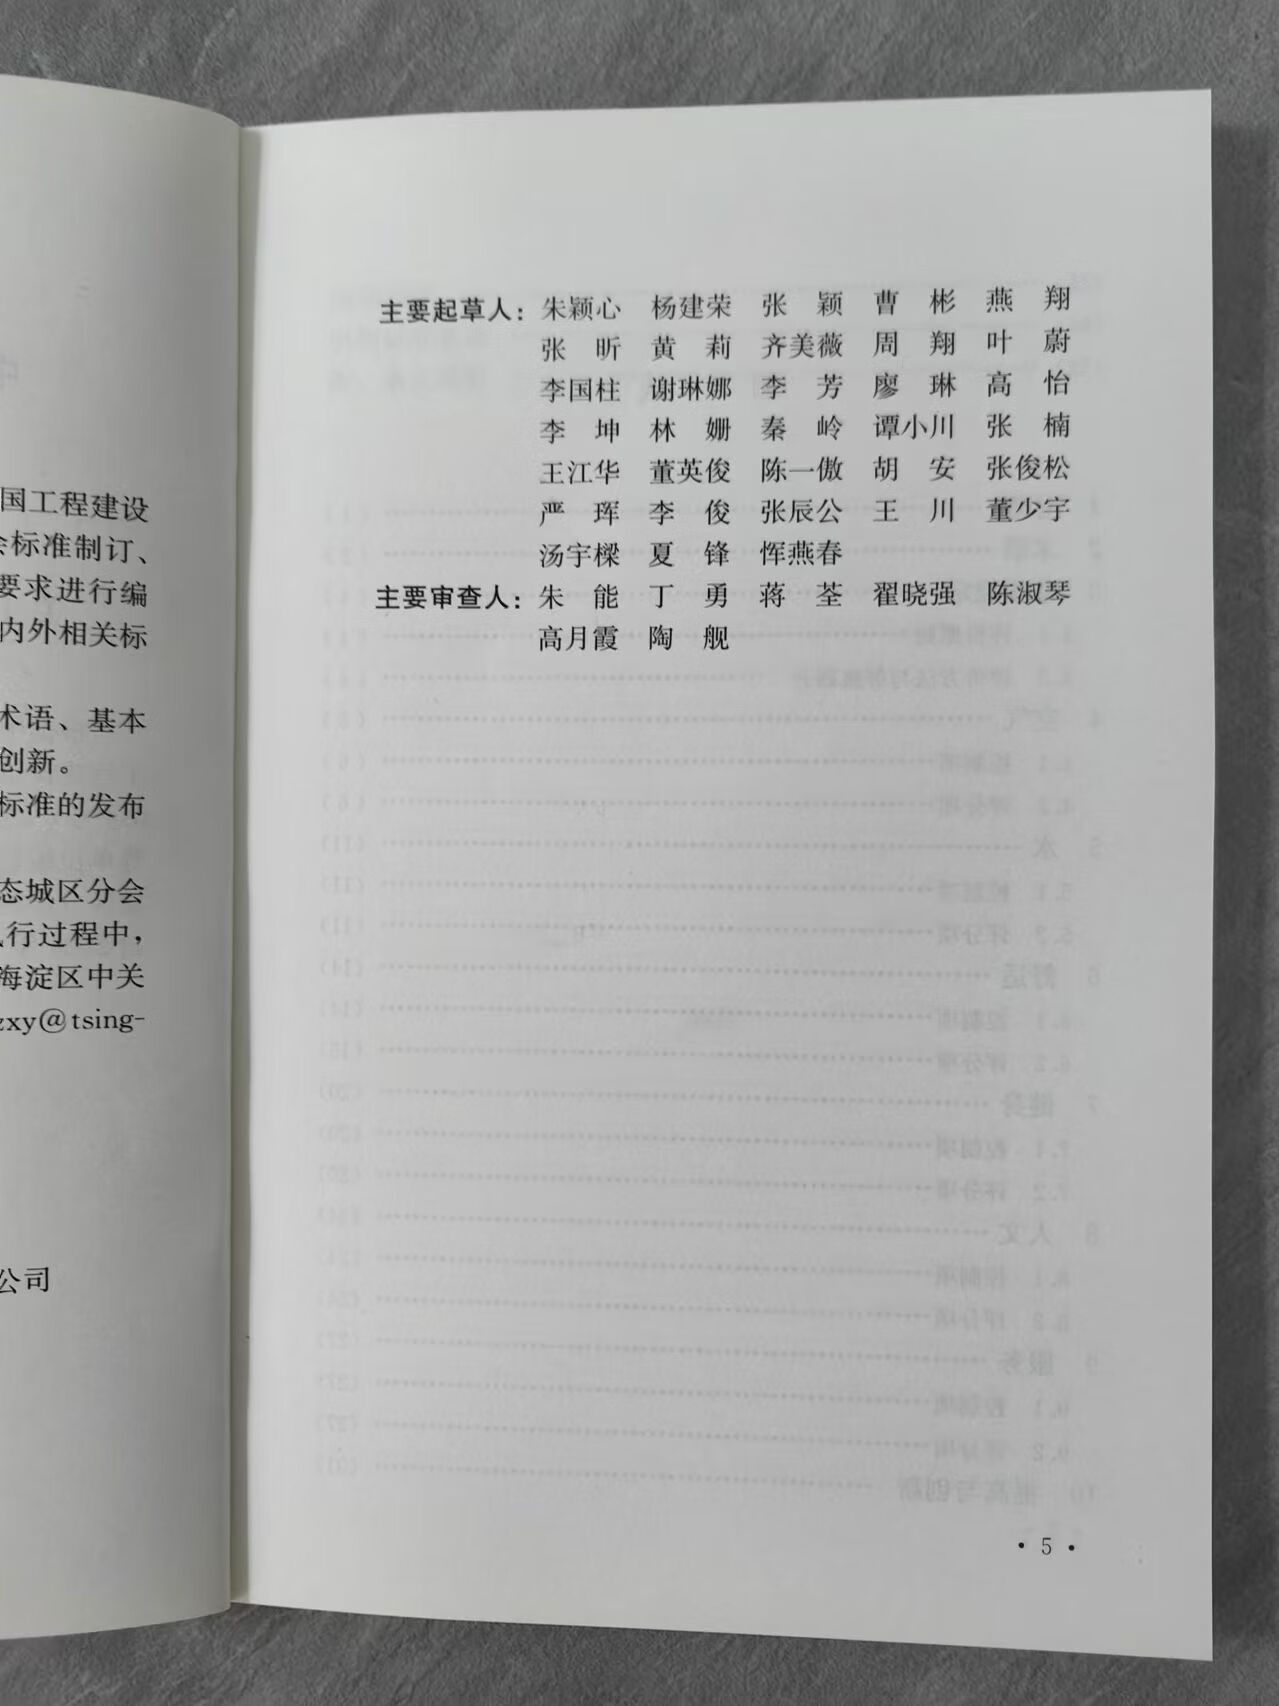 国工程建设
会标准制订、
要求进行编
内外相关标
术语、基本
创新。
标准的发布
态城区分会
行过程中,
海淀区中关
zxy@tsing-
公司
主要起草人：朱颖心 杨建荣 张 颖 曹 彬 燕 翔
张 昕 黄 莉 齐美薇 周 翔 叶 蔚
李国柱 谢琳娜 李 芳 廖 琳 高 怡
李 坤 林 姗 秦 岭 谭小川 张 楠
王江华 董英俊 陈一傲 胡 安 张俊松
严 珲 李 俊 张辰公 王 川 董少宇
汤宇樑 夏 锋 恽燕春
主要审查人：朱 能 丁 勇 蒋 荃 翟晓强 陈淑琴
高月霞 陶 舰
• 5 •